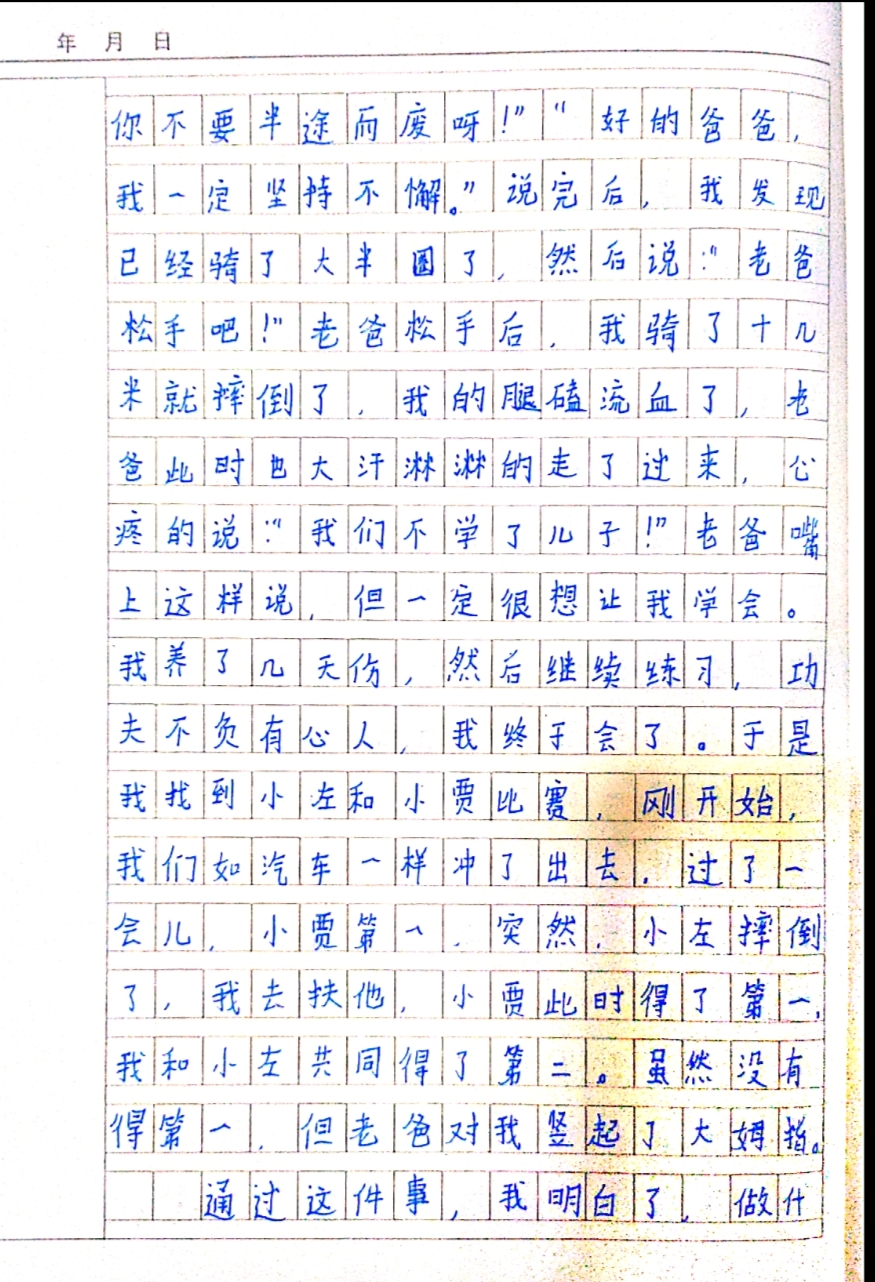 年 月 日
你不要半途而废呀!”“好的爸爸,
我一定坚持不懈。”说完后,我发现
已经骑了大半圈了,然后说:“老爸
松手吧!”老爸松手后,我骑了十几
米就摔倒了,我的腿磕流血了,老
爸此时也大汗淋淋的走了过来,心
疼的说:“我们不学了儿子!”老爸嘴
上这样说,但一定很想让我学会。
我养了几天伤,然后继续练习,功
夫不负有心人,我终于会了。于是
我找到小左和小贾比赛,刚开始,
我们如汽车一样冲了出去,过了一
会儿,小贾第一,突然,小左摔倒
了,我去扶他,小贾此时得了第一,
我和小左共同得了第二。虽然没有
得第一,但老爸对我竖起了大姆指。
通过这件事,我明白了,做什